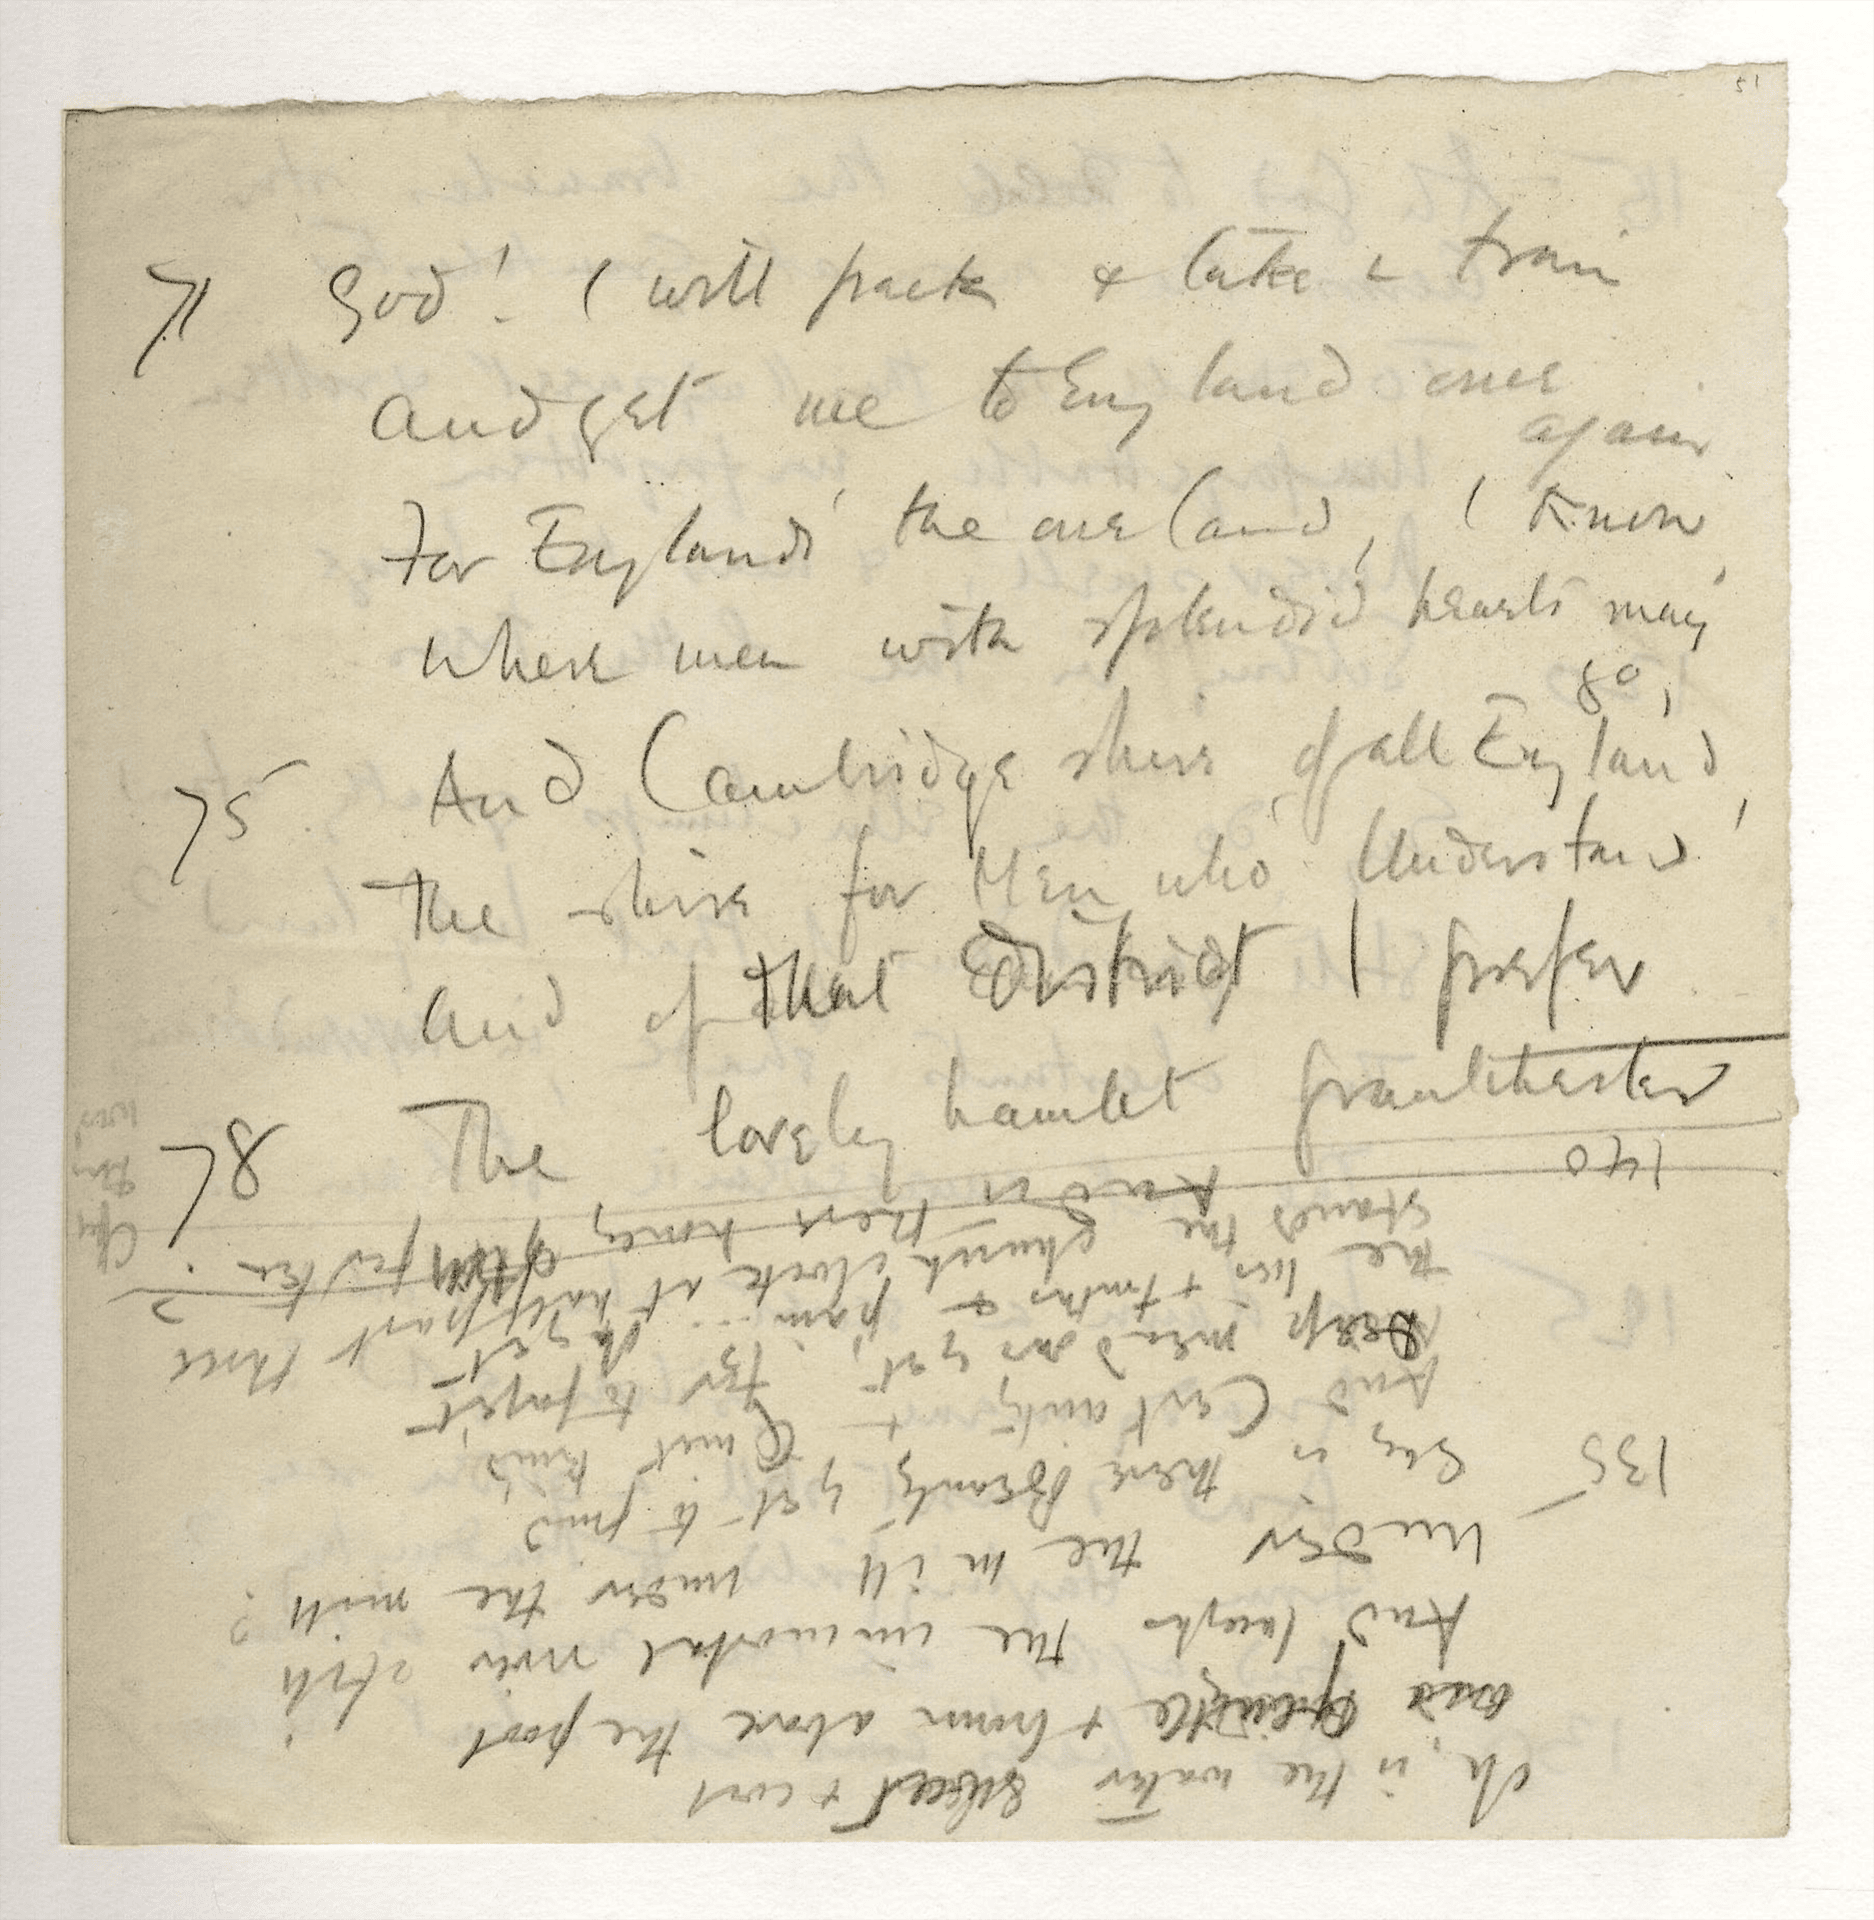 71 God! I will pack & take a train
And get me to England once
again
For England's the one land, I know,
Where men with splendid hearts may
go,
75 And Cambridgeshire of all England,
The shire for Men who Understand,
And of that district I prefer
78 The lovely hamlet Grantchester
Oh, is the water sweet & cool
and gentle & brown above the pool
And laughs the immortal river still
Under the mill under the mill?
135 Say is there Beauty yet to find,
And Certainty & Quiet kind,
Deep meadows yet, for to forget
The lies & truths & pain... oh yet
140 Stands the church clock at half past three
And is there honey still for tea?